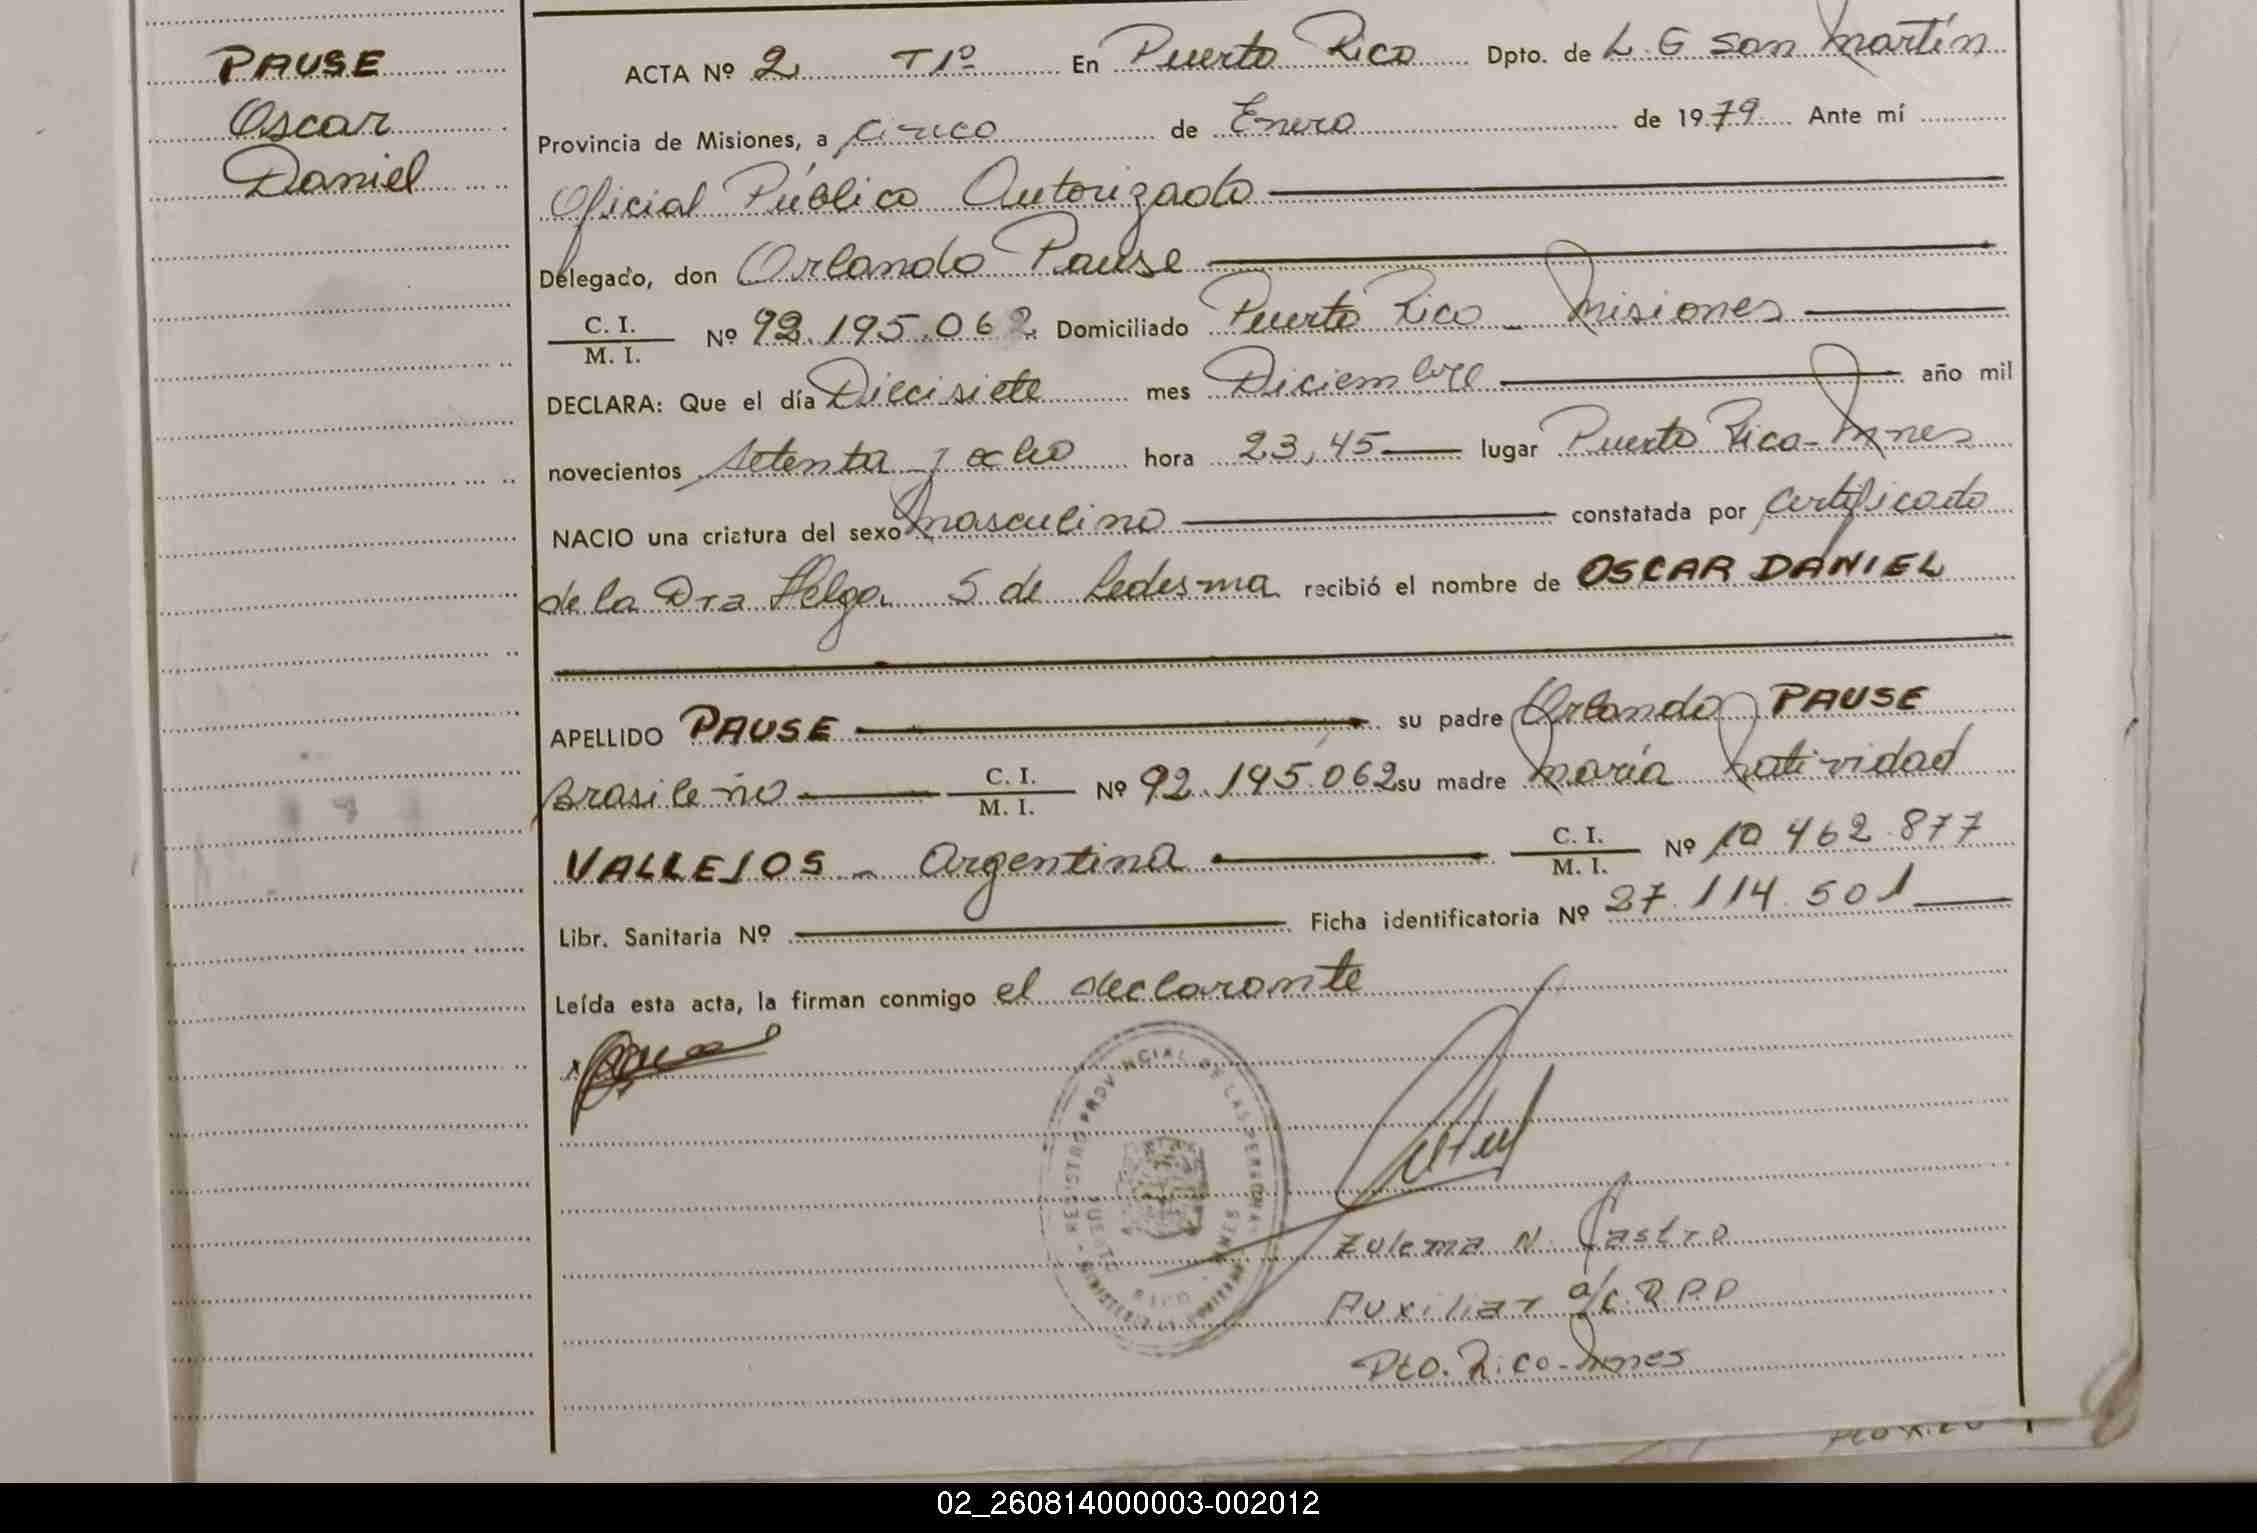 PAUSE
Oscar
Daniel
ACTA Nº 2 T1º En Puerto Rico Dpto. de L. G San Martín
Provincia de Misiones, a cinco de Enero de 1979 Ante mí
Oficial Público Autorizado
Delegado, don Orlando Pause
C. I.
M. I. Nº 92.195.062 Domiciliado Puerto Rico - Misiones
DECLARA: Que el día Diecisiete mes Diciembre año mil
novecientos setenta y ocho hora 23,45 lugar Puerto Rico - Mnes
NACIO una criatura del sexo masculino constatada por certificado
de la Dra Helga S de Ledesma recibió el nombre de OSCAR DANIEL
APELLIDO PAUSE su padre Orlando PAUSE
Brasileño C. I. M. I. Nº 92.195.062 su madre María Natividad
VALLEJOS - argentina C. I. M. I. Nº 10 462.877
Libr. Sanitaria Nº Ficha identificatoria Nº 27.114.501
Leída esta acta, la firman conmigo el declarante
REGISTRO PROVINCIAL DE LAS PERSONAS
Zulema N. Castro
Auxiliar a/c. R.P.P
Pto. Rico - Mnes
02_260814000003-002012